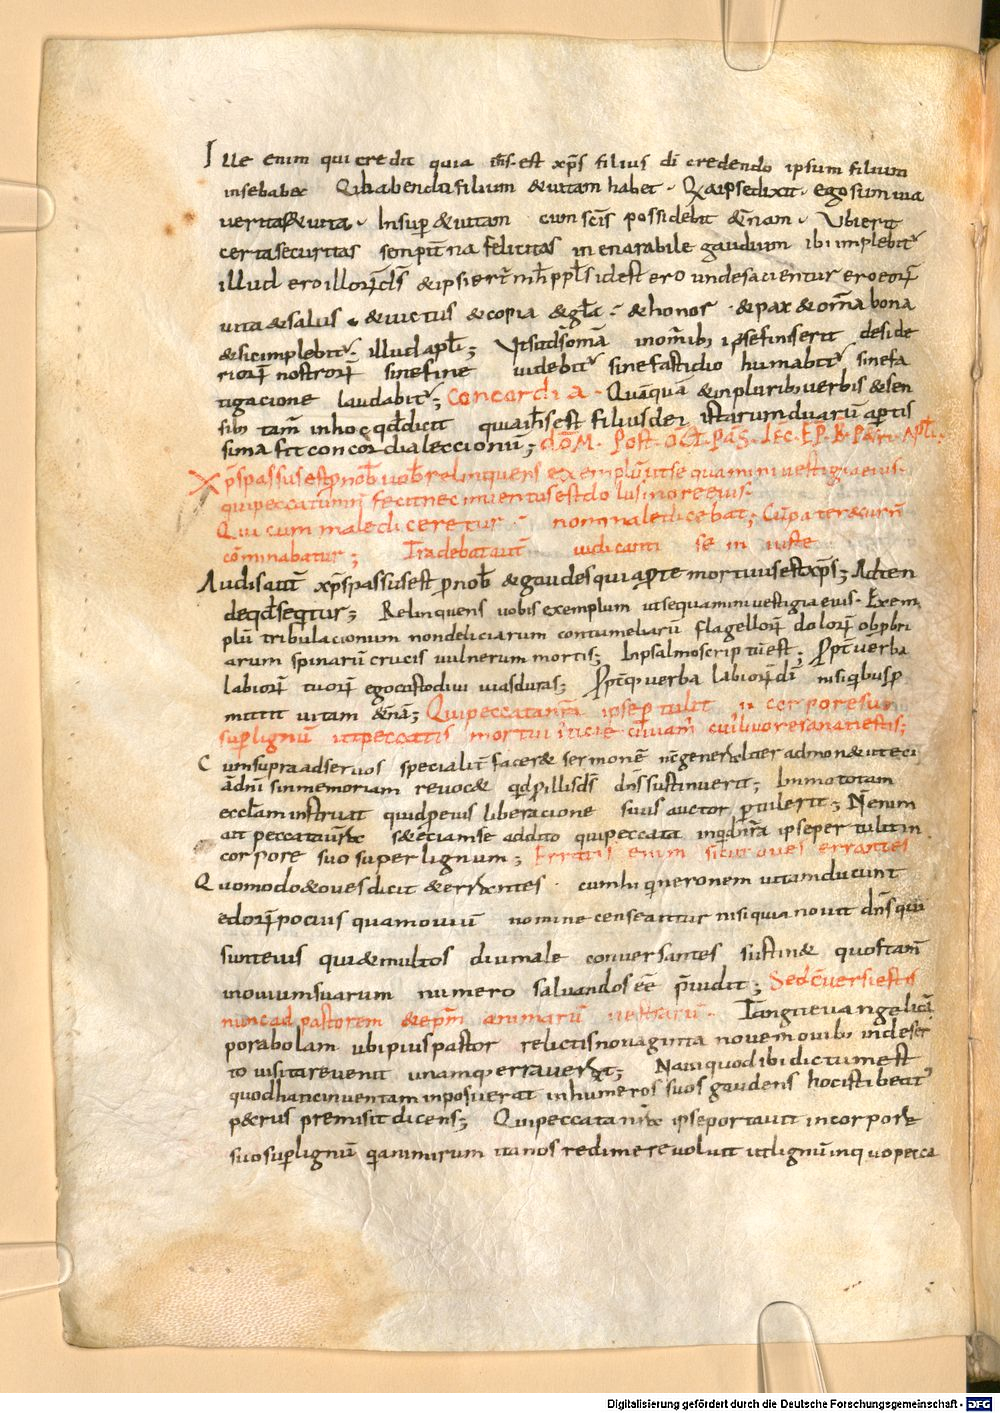 Ille enim qui credit quia ih̄s est xp̄s filius dī credendo ipsum filium
in se habet Qui habendo filium &uitam habet. Quia ipse dixit. ego sum uia
ueritas &uita. Insup̄ &uitam cum sc̄is possidebit &̄nam. Ubi erit
certa securitas sempit̄na felicitas inenarabile gaudium ibi implebit᷒
illud ero illorū ds̄ &ipsi er̄t mīh ppl̄s id est ero unde sacientur ero eorū
uita &salus. &uictus &copia &gl̄a. &honor. &pax &om̄a bona
&sic implebit᷒. illud apl̄i; Vt sit ds̄ om̄a in omīb; ipse finis erit deside
riorū nostrorū sine fine uidebit᷒ sine fastidio h amabit᷒ sine fa
tigacione laudabit᷒; Concordia. Quāquā &in plurib; uerbis &sen
sib; tam̄ in hoc qd̄ dicit quia ih̄s est filius dei istarum duarū aptis
sima fit concordia leccionū; dōm. post. oct̄. pas̄. lec. ep. b. petri. apl̄i.
Xp̄s passus est p nob̄ uob̄ relinquens exemplū ut sequamini uestigia eius.
qui peccatum n̄ fecit nec inuentus est dolus in ore eius.
Qui cum malediceretur. non maledicebat; Cū pateretur n̄
cōminabatur; Tradebat aut̄ iudicanti se iniuste
Audis aut̄ xp̄s passus est p nob̄ &gaudes quia p te mortuus est xp̄s; Adten
de qd̄ seqtur; Relinquens uobis exemplum ut sequamini uestigia eius. Exem
plū tribulacionum non deliciarum contumeliarū flagellorū dolorū obpbri
arum spinarū crucis uulnerum mortis; In psalmo scriptū est; Ppt̄ uerba
labiorū tuorū ego custodiui uias duras; Ppt̄ q̄ uerba labiorū dī nisi quibus p
mittit uitam &̄nā; Qui peccata nr̄a ipse ptulit in corpore suo
sup lignū ut peccatis mortui iusticie uiuam̄ cui᷒ liuore sanati estis;
Cum supra ad seruos specialit̄ facer& sermonē n̄c generaliter admon& ut eti
ā dn̄i sui in memoriam reuoc& qd̄ p illis ds̄ dn̄s sustinuerit; Immo totam
eccl̄am instruat quid p eius liberacione suus auctor ptulerit; N̄ enim
ait peccata ur̄a s& eciam se addito qui peccata inquid nr̄a ipse pertulit in
corpore suo super lignum; Erratis enim sicut oues errantes
Quomodo &oues dicit &errantes. cum hi qui in eronem uitam ducunt
edorū pocius quam ouiū nomine censeantur nisi quia nouit dn̄s qui
sunt eius qui &multos diu male conuersantes sustin& quos tam̄
in ouium suarum numero saluandos eē p̄uidit; Sed cūersi estis
nunc ad pastorem &ep̄m animarū uestrarū. Tangit euangelicā
parabolam ubi pius pastor relictis nonaginta nouem ouib; in deser
to uisitare uenit unam q̄ erraverat; Nam quod ibi dictum est
quod hanc inuentam inposuerat in humeros suos gaudens hoc isti beat᷒
petrus premisit dicens; Qui peccata nr̄a ipse portauit in corpore
suo sup lignū q̄a nimirum ita nos redimere uoluit ut lignū in quo pecca
Digitalisierung gefördert durch die Deutsche Forschungsgemeinschaft - DFG